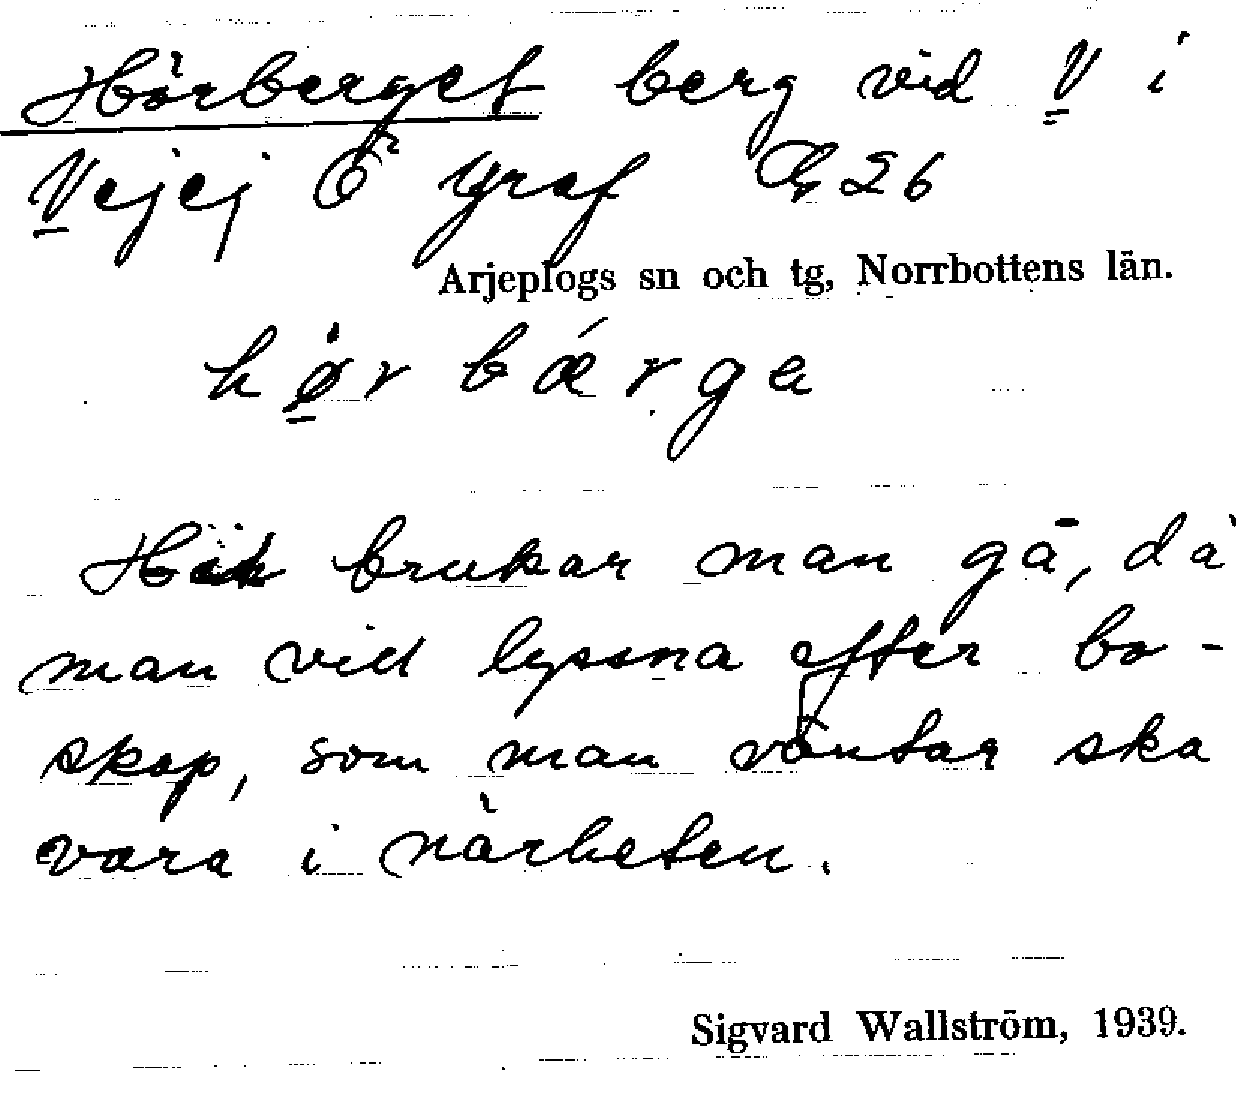 Hörberget berg vid V i
Vejej Ö Graf 26
Arjeplogs sn och tg, Norrbottens län.
hø̱r bǽrga
Hit brukar man gå, då
man vid lyssna efter bo-
skap, som man väntar ska
vara i närheten.
Sigvard Wallström, 1939.